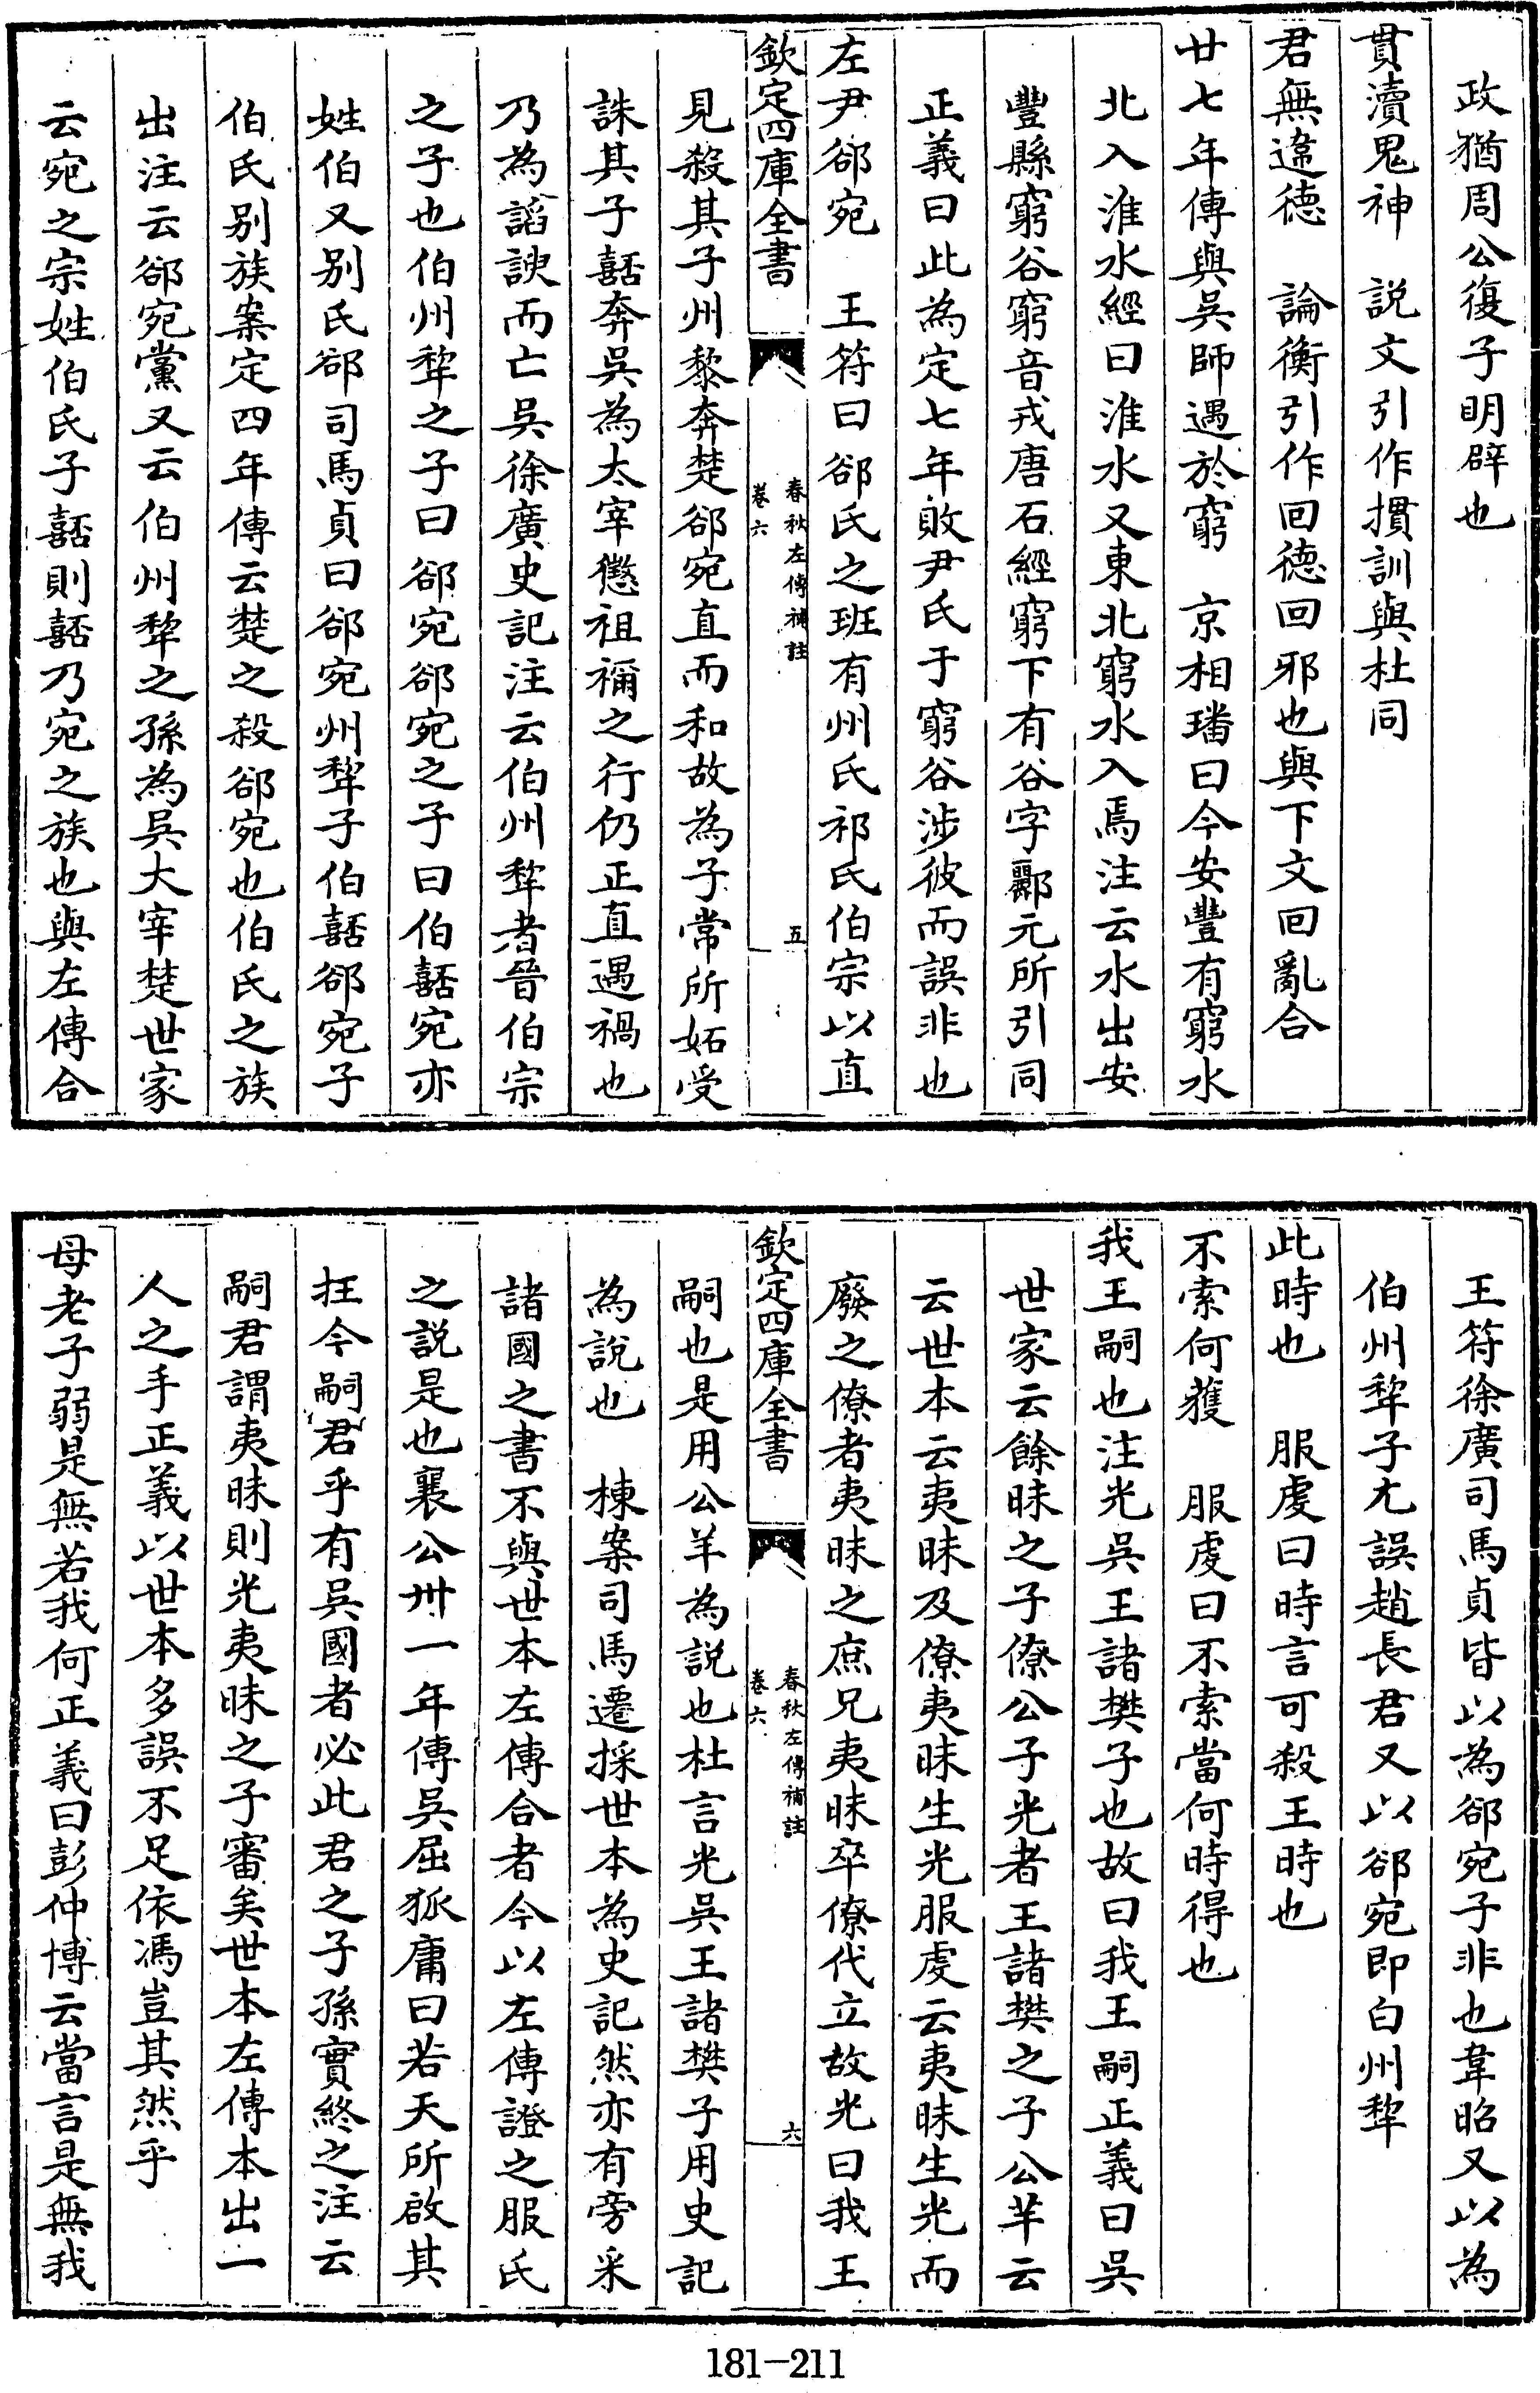 政猶周公復子明辟也
貫瀆鬼神　説文引作摜訓與杜同
君無違徳　論衡引作回徳回邪也與下文回亂合
廿七年傳與吳師遇於窮　京相璠曰今安豐有窮水
北入淮水經曰淮水又東北窮水入焉注云水出安
豐縣窮谷窮音戎唐石經窮下有谷字酈元所引同
正義曰此為定七年敗尹氏于窮谷渉彼而誤非也
左尹郤宛　王符曰郤氏之班有州氏祁氏伯宗以直
欽定四庫全書
春秋左傳補註
卷六
五
見殺其子州黎奔楚郤宛直而和故為子常所妬受
誅其子嚭奔吳為太宰懲祖禰之行仍正直遇禍也
乃為謟諛而亡吳徐廣史記注云伯州犂者晉伯宗
之子也伯州犂之子曰郤宛郤宛之子曰伯嚭宛亦
姓伯又别氏郤司馬貞曰郤宛州犂子伯嚭郤宛子
伯氏别族案定四年傳云楚之殺郤宛也伯氏之族
出注云郤宛黨又云伯州犂之孫為吳大宰楚世家
云宛之宗姓伯氏子嚭則嚭乃宛之族也與左傳合
王符徐廣司馬貞皆以為郤宛子非也韋昭又以為
伯州犂子尢誤趙長君又以郤宛即白州犂
此時也　服虔曰時言可殺王時也
不索何獲　服虔曰不索當何時得也
我王嗣也注光吳王諸樊子也故曰我王嗣正義曰吳
世家云餘昧之子僚公子光者王諸樊之子公羊云
云世本云夷昧及僚夷昧生光服虔云夷昧生光而
廢之僚者夷昧之庶兄夷昧卒僚代立故光曰我王
欽定四庫全書
春秋左傳補註
卷六
六
嗣也是用公羊為説也杜言光吳王諸樊子用史記
為説也　棟案司馬遷採世本為史記然亦有旁采
諸國之書不與世本左傳合者今以左傳證之服氏
之説是也襄公卅一年傳吳屈狐庸曰若天所啟其
在今嗣君乎有吳國者必此君之子孫實終之注云
嗣君謂夷昧則光夷昧之子審矣世本左傳本出一
人之手正義以世本多誤不足依馮豈其然乎
母老子弱是無若我何正義曰彭仲博云當言是無我
181-211